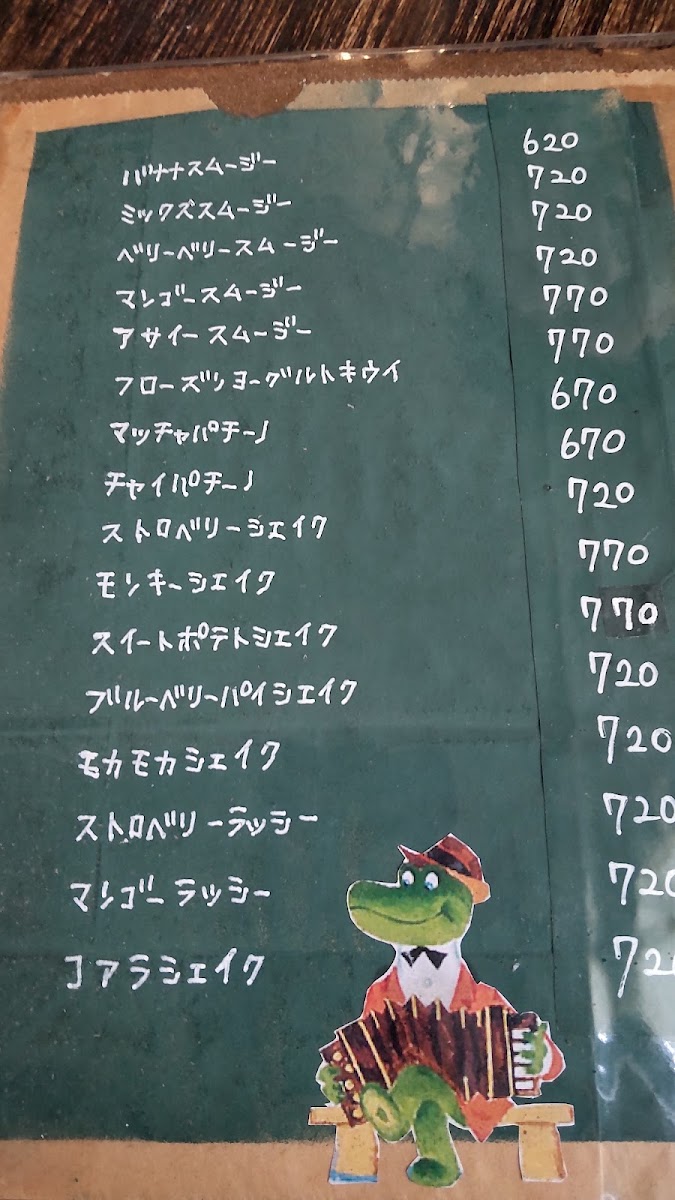 バナナスムージー 620
ミックズスムージー 720
ベリーベリースムージー 720
マンゴースムージー 720
アサイースムージー 770
フローズンヨーグルトキウイ 770
マッチャパチーノ 670
チャイパチーノ 670
ストロベリーシェイク 720
モンキーシェイク 770
スイートポテトシェイク 770
ブルーベリーパイシェイク 720
モカモカシェイク 720
ストロベリーラッシー 720
マンゴーラッシー 720
コアラシェイク 720